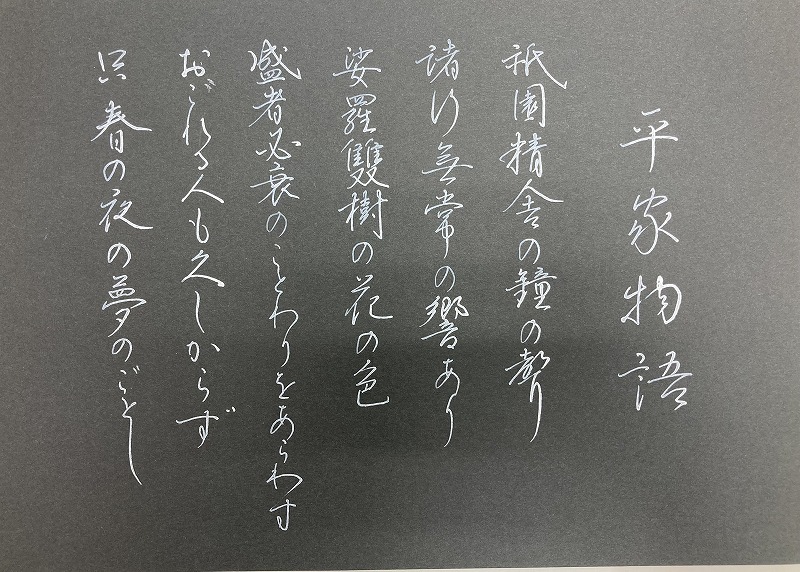 平家物語
祇園精舎の鐘の聲
諸行無常の響あり
娑羅雙樹の花の色
盛者必衰のことわりをあらわす
おごれる人も久しからず
只春の夜の夢のごとし